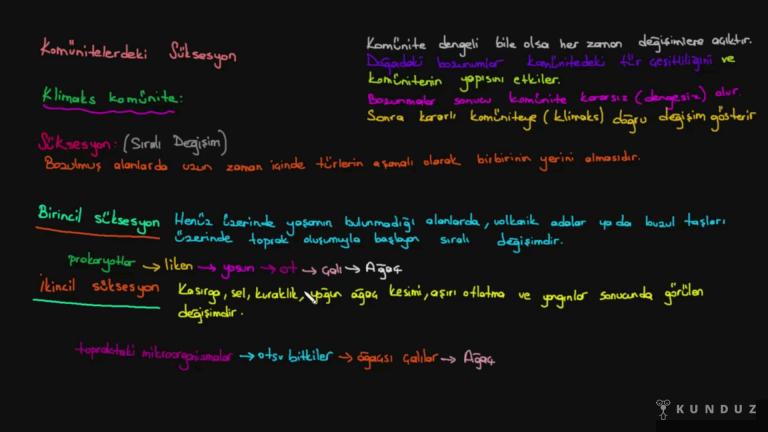 Komünitelerdeki Süksesyon
Klimaks komünite:
Komünite dengeli bile olsa her zaman değişimlere açıktır.
Doğadaki bozunumlar komünitedeki tür çeşitliliğini ve
komünitenin yapısını etkiler.
Bozunmalar sonucu komünite kararsız (dengesiz) olur.
Sonra kararlı komüniteye (klimaks) doğru değişim gösterir
Süksesyon: (Sıralı Değişim)
Bozulmuş alanlarda uzun zaman içinde türlerin aşamalı olarak birbirinin yerini almasıdır.
Birincil süksesyon Henüz üzerinde yaşamın bulunmadığı alanlarda, volkanik adalar ya da buzul taşları
üzerinde toprak oluşumuyla başlayan sıralı değişimdir.
prokaryotlar → liken → yosun → ot → çalı → Ağaç
İkincil süksesyon Kasırga, sel, kuraklık, yoğun ağaç kesimi, aşırı otlatma ve yangınlar sonucunda görülen
değişimdir.
topraktaki mikroorganismalar → otsu bitkiler → ağaçsı çalılar → Ağaç
KUNDUZ